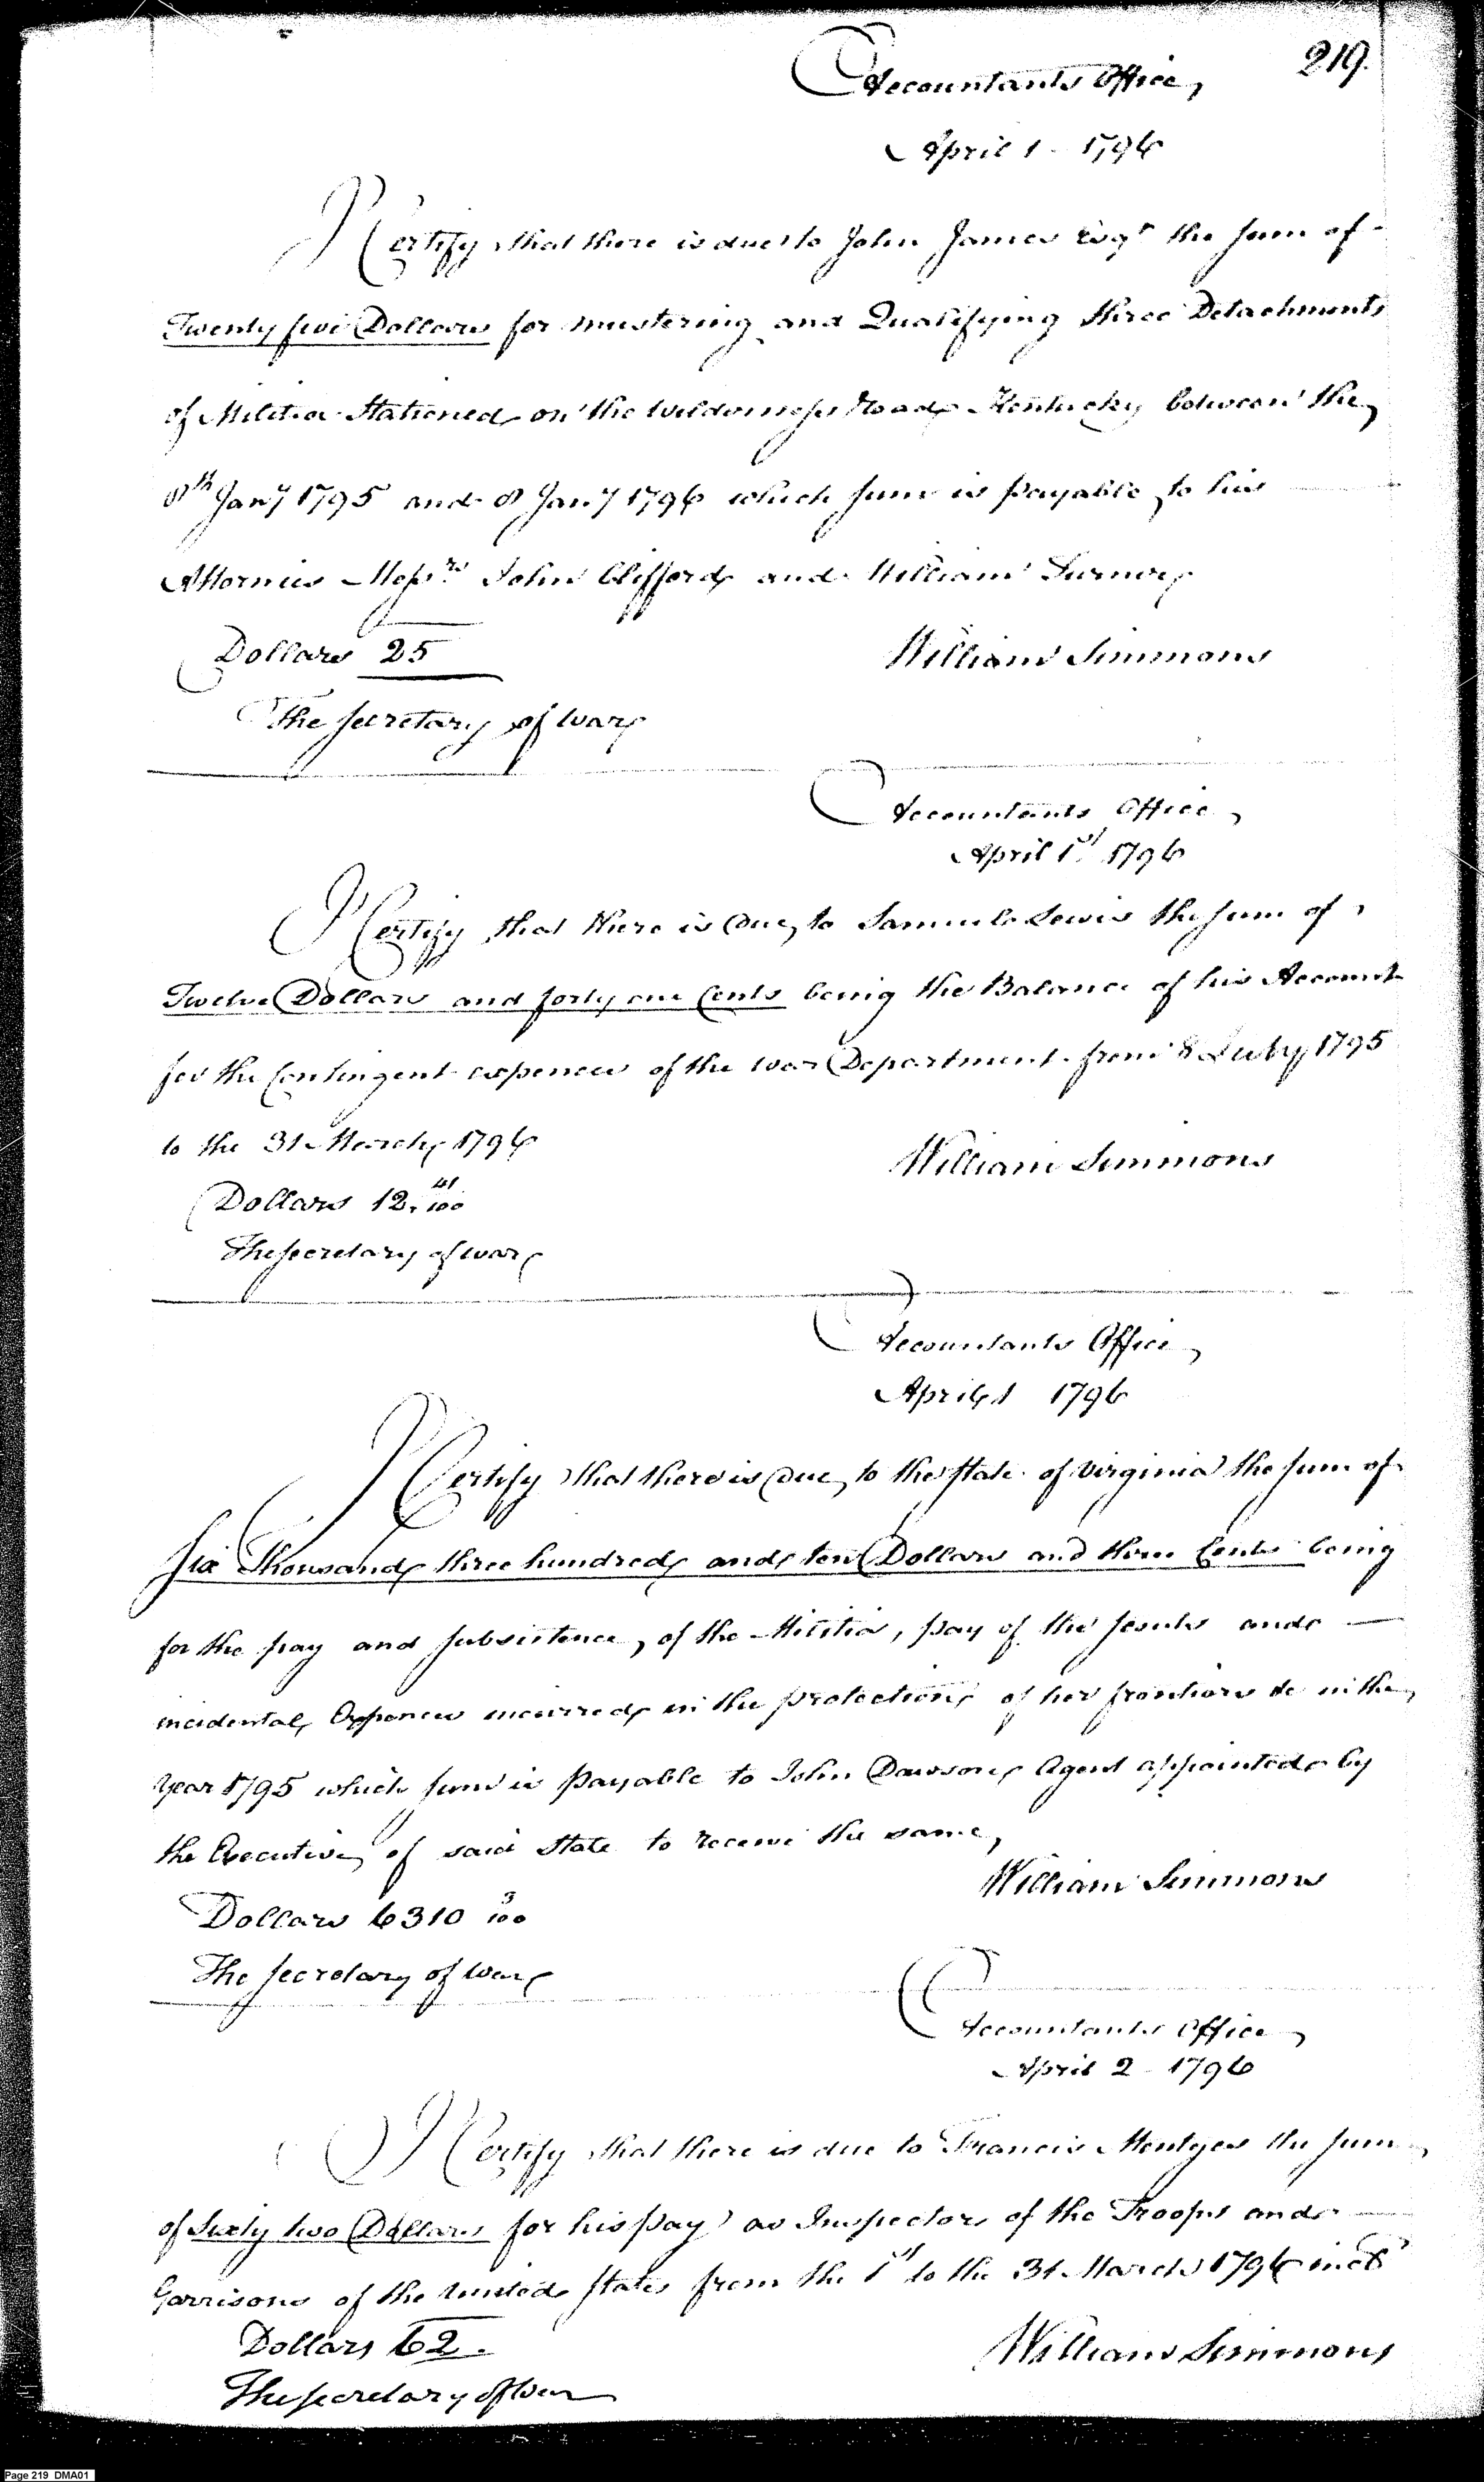 219.
Accountants Office,
April 1 - 1796
I Certify that there is due to John James Esqr the sum of
Twenty five Dollars for mustering and Qualifying three Detachments
of Militia Stationed on the Wilderness Road Kentucky between the
8th Jany 1795 and 8 Jany 1796 which sum is payable to his
Attornies Messrs John Clifford and William Turner
Dollars 25
William Simmons
The Secretary of War
Accountants Office,
April 1st 1796
I Certify that there is due to Samuel Lewis the sum of
Twelve Dollars and forty one Cents being the Balance of his Account
for the Contingent expences of the War Department from 8 July 1795
to the 31 March 1796
William Simmons
Dollars 12. 41/100
The Secretary of War
Accountants Office,
April 1 1796
I Certify that there is due to the State of Virginia the sum of
Six Thousand three hundred and ten Dollars and three Cents being
for the pay and subsistence, of the Militia, pay of the scouts and
incidental Expences incurred in the protection of her frontiers &c in the
Year 1795 which sum is payable to John Dawson, Agent appointed by
the Executive of said State to receive the same,
William Simmons
Dollars 6310 3/100
The Secretary of War
Accountants Office,
April 2 - 1796
I Certify that there is due to Francis Mentges the sum
of Sixty two Dollars for his pay as Inspector of the Troops and
Garrisons of the United States from the 1st to the 31 March 1796 incle
Dollars 62.
William Simmons
The Secretary of War
Page 219 DMA01